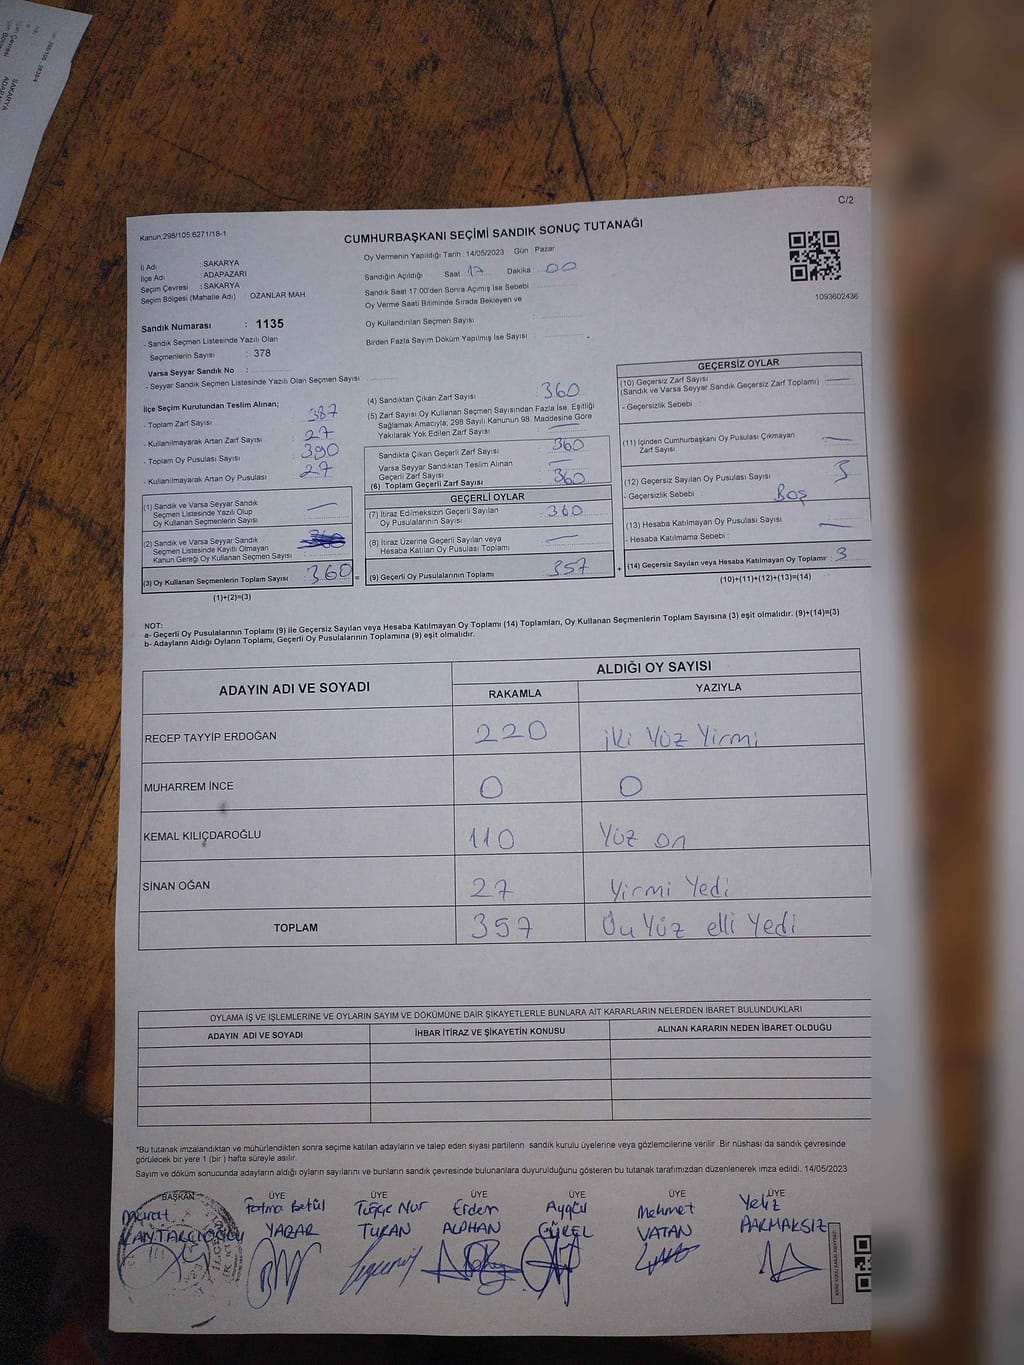 C/2
Kanun:298/105.6271/18-1
CUMHURBAŞKANI SEÇİMİ SANDIK SONUÇ TUTANAĞI
İl Adı : SAKARYA
İlçe Adı : ADAPAZARI
Seçim Çevresi : SAKARYA
Seçim Bölgesi (Mahalle Adı) OZANLAR MAH.
Sandık Numarası : 1135
- Sandık Seçmen Listesinde Yazılı Olan
Seçmenlerin Sayısı : 378
Varsa Seyyar Sandık No :
- Seyyar Sandık Seçmen Listesinde Yazılı Olan Seçmen Sayısı :
Oy Vermenin Yapıldığı Tarih : 14/05/2023 Gün : Pazar
Sandığın Açıldığı Saat : 17 Dakika : 00
Sandık Saat 17:00'den Sonra Açımış İse Sebebi :
Oy Verme Saati Bitiminde Sırada Bekleyen ve
Oy Kullandırılan Seçmen Sayısı :
Birden Fazla Sayım Döküm Yapılmış İse Sayısı :
1093602436
İlçe Seçim Kurulundan Teslim Alınan;
- Toplam Zarf Sayısı : 387
- Kullanılmayarak Artan Zarf Sayısı : 27
- Toplam Oy Pusulası Sayısı : 390
- Kullanılmayarak Artan Oy Pusulası : 27
(1) Sandık ve Varsa Seyyar Sandık
Seçmen Listesinde Yazılı Olup
Oy Kullanan Seçmenlerin Sayısı :
(2) Sandık ve Varsa Seyyar Sandık
Seçmen Listesinde Kayıtlı Olmayan
Kanun Gereği Oy Kullanan Seçmen Sayısı :
(3) Oy Kullanan Seçmenlerin Toplam Sayısı : 360 =
(1)+(2)=(3)
(4) Sandıktan Çıkan Zarf Sayısı : 360
(5) Zarf Sayısı Oy Kullanan Seçmen Sayısından Fazla İse, Eşitliği
Sağlamak Amacıyla; 298 Sayılı Kanunun 98. Maddesine Göre
Yakılarak Yok Edilen Zarf Sayısı :
Sandıkta Çıkan Geçerli Zarf Sayısı : 360
Varsa Seyyar Sandıktan Teslim Alınan
Geçerli Zarf Sayısı :
(6) Toplam Geçerli Zarf Sayısı : 360
GEÇERLİ OYLAR
(7) İtiraz Edimeksizin Geçerli Sayılan
Oy Pusulalarının Sayısı : 360
(8) İtiraz Üzerine Geçerli Sayılan veya
Hesaba Katılan Oy Pusulası Toplamı :
(9) Geçerli Oy Pusulalarının Toplamı : 357 +
GEÇERSİZ OYLAR
(10) Geçersiz Zarf Sayısı
(Sandık ve Varsa Seyyar Sandık Geçersiz Zarf Toplamı) :
- Geçersizlik Sebebi :
(11) İçinden Cumhurbaşkanı Oy Pusulası Çıkmayan
Zarf Sayısı :
(12) Geçersiz Sayılan Oy Pusulası Sayısı : 3
- Geçersizlik Sebebi : Boş
(13) Hesaba Katılmayan Oy Pusulası Sayısı :
- Hesaba Katılmama Sebebi :
(14) Geçersiz Sayılan veya Hesaba Katılmayan Oy Toplamı : 3
(10)+(11)+(12)+(13)=(14)
NOT:
a- Geçerli Oy Pusulalarının Toplamı (9) ile Geçersiz Sayılan veya Hesaba Katılmayan Oy Toplamı (14) Toplamları, Oy Kullanan Seçmenlerin Toplam Sayısına (3) eşit olmalıdır. (9)+(14)=(3)
b- Adayların Aldığı Oyların Toplamı, Geçerli Oy Pusulalarının Toplamına (9) eşit olmalıdır.
ADAYIN ADI VE SOYADI
ALDIĞI OY SAYISI
RAKAMLA YAZIYLA
RECEP TAYYİP ERDOĞAN 220 iki Yüz Yirmi
MUHARREM İNCE 0 0
KEMAL KILIÇDAROĞLU 110 Yüz on
SİNAN OĞAN 27 Yirmi Yedi
TOPLAM 357 Üç Yüz elli Yedi
OYLAMA İŞ VE İŞLEMLERİNE VE OYLARIN SAYIM VE DÖKÜMÜNE DAİR ŞİKAYETLERLE BUNLARA AİT KARARLARIN NELERDEN İBARET BULUNDUKLARI
ADAYIN ADI VE SOYADI İHBAR İTİRAZ VE ŞİKAYETİN KONUSU ALINAN KARARIN NEDEN İBARET OLDUĞU
*Bu tutanak imzalandıktan ve mühürlendikten sonra seçime katılan adayların ve talep eden siyasi partilerin sandık kurulu üyelerine veya gözlemcilerine verilir. Bir nüshası da sandık çevresinde
görülecek bir yere 1 (bir) hafta süreyle asılır.
Sayım ve döküm sonucunda adayların aldığı oyların sayılarını ve bunların sandık çevresinde bulunanlara duyurulduğunu gösteren bu tutanak tarafımızdan düzenlenerek imza edildi. 14/05/2023
BAŞKAN ÜYE ÜYE ÜYE ÜYE ÜYE ÜYE
Murat Fatma Betül Tuğçe Nur Erden Aygül Mehmet Yeliz
KANTARCIOĞLU YAZAR TURAN ALPHAN GÜREL VATAN PARMAKSIZ